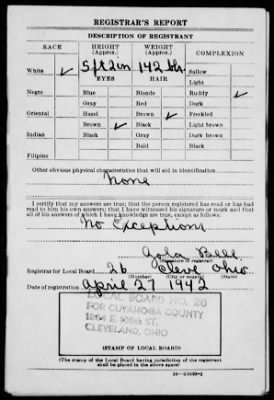 REGISTRAR'S REPORT
DESCRIPTION OF REGISTRANT
RACE HEIGHT (Approx.) WEIGHT (Approx.) COMPLEXION
White ✓ 5 ft 2 in 142 lbs Sallow
EYES HAIR Light
Negro Blue Blonde Ruddy ✓
Gray Red Dark
Oriental Hazel Brown ✓ Freckled
Brown ✓ Black Light brown
Indian Black Gray Dark brown
Bald Black
Filipino
Other obvious physical characteristics that will aid in identification
None
I certify that my answers are true; that the person registered has read or has had
read to him his own answers; that I have witnessed his signature or mark and that
all of his answers of which I have knowledge are true, except as follows:
No Exceptions
Belle
Registrar for Local Board 26 Cleve Ohio
(Number) (City or county) (State)
Date of registration April 27 1942
LOCAL BOARD NO. 26
FOR CUYAHOGA COUNTY
ST.
CLEVELAND, OHIO
(STAMP OF LOCAL BOARD)
(The stamp of the Local Board having jurisdiction of the registrant
shall be placed in the above space)